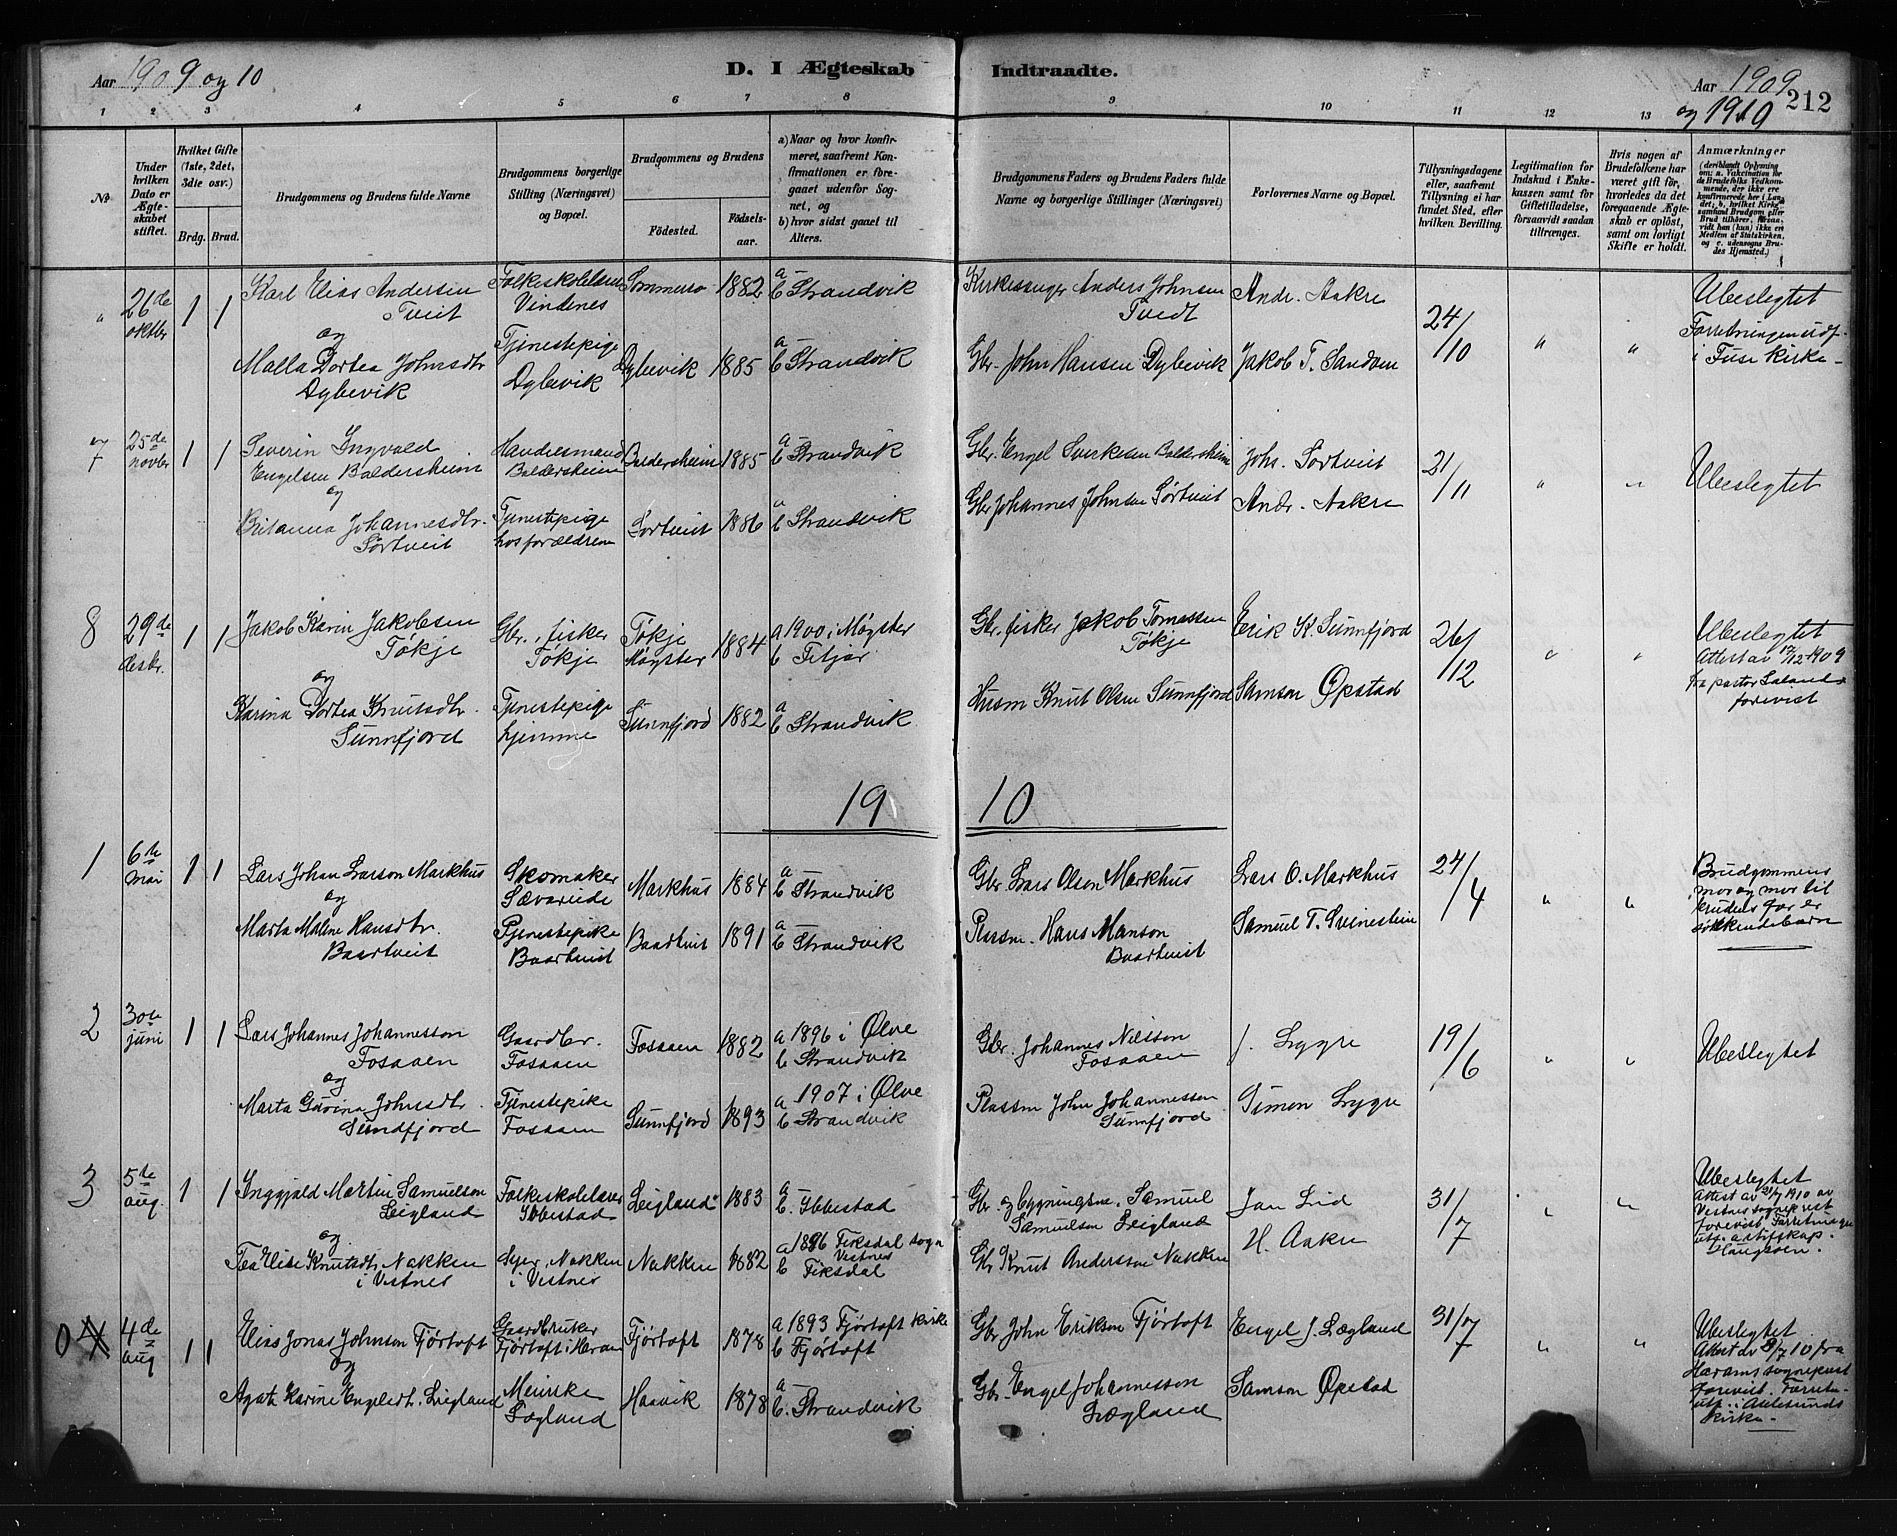 Aar 1909 og 10
D. I Ægteskab
Indtraadte.
Aar 1909
og 1910
212
1 2 3 4 5 6 7 8 9 10 11 12 13
No
Under hvilken Dato er Ægteskabet stiftet.
Hvilket Gifte (1ste, 2det, 3die osv.)
Brdg. Brud.
Brudgommens og Brudens fulde Navne
Brudgommens borgerlige Stilling (Næringsvei) og Bopæl.
Brudgommens og Brudens
Födested.
Födsels-aar.
a) Naar og hvor konfirmeret, saafremt Konfirmationen er foregaaet udenfor Sognet, og
b) hvor sidst gaaet til Alters.
Brudgommens Faders og Brudens Faders fulde Navne og borgerlige Stillinger (Næringsvei)
Forlovernes Navne og Bopæl.
Tillysningsdagene eller, saafremt Tillysning ei har fundet Sted, efter hvilken Bevilling.
Legitimation for Indskud i Enkekassen samt for Giftetilladelse, forsaavidt saadan tiltrænges.
Hvis nogen af Brudefolkene har været gift før, hvorledes da det foregaaende Ægteskab er opløst, samt om lovligt Skifte er holdt.
Anmærkninger
(deriblandt Oplysning om: a. Vaccination for de Brudefolks Vedkommende, der ikke ere konfirmerede her i Landet; b. hvilket Kirkesamfund Brudgom eller Brud tilhører, forsaavidt han (hun) ikke er Medlem af Statskirken, og c. udensogns Brudes Hjemsted.)
" 26de oktbr 1 1 Karl Elias Andersen Tveit
Vindenes
1882 a – b Strandvik
Kirkesanger Anders Johnsen Tvedt
Andr. Aakre
24/10 " "
Ubeslegtet
i Fuse Kirke –
og
Malla Dortea Johnsdtr Dybevik
Tjenestepige Dybevik
Dybevik 1885 a – b Strandvik
Gbr. John Hansen Dybevik
Jakob T. Sandven
7 25de novbr 1 1 Severin Ingvald Engelsen Baldersheim
Baldersheim
Baldersheim 1885 a – b Strandvik
Gbr. Engel Sverkesen Baldersheim
Johs. Sørtveit
21/11 " "
Ubeslegtet
og
Britanna Johannesdtr. Sørtveit
Tjenestepige hos forældrene
Sørtveit 1886 a – b Strandvik
Gbr Johannes Johnsen Sørtveit
Andr. Aakre
8 29de desbr. 1 1 Jakob Karin Jakobsen Tøkje
Gbr., fisker Tøkje
Tøkje Møgster 1884 a 1900 i Møgster b Fitjar
Gbr. fisker Jakob Tomassen Tøkje
Erik K. Sunnfjord
26/12 " "
Ubeslegtet
Attest av 17/12 1909
fra pastor
forevist
og
Karina Dortea Knutsdtr. Sunnfjord
Tjenestepige hjemme
Sunnfjord 1882 a – b Strandvik
Husm Knut Olsen Sunnfjord
Samson Øpstad
1910
1 6te mai 1 1 Lars Johan Larson Markhus
Skomaker Sævareide
Markhus 1884 a – b Strandvik
Gbr Lars Olson Markhus
Lars O. Markhus
24/4 " "
Brudgommens
mor og mor til
brudens far er
søskendebarn
og
Marta Malene Hansdtr. Baartveit
Tjenestepike Baartveit
Baadtveit 1891 a – b Strandvik
Plassm. Hans Manson Baartveit
Samuel T. Svinestein
2 30te juni 1 1 Lars Johannes Johannesson Fosaaen
Gaardbr. Fosaaen
Fosaaen 1882 a 1896 i Ølve b Strandvik
Gbr. Johannes Nilsson Fosaaen
J. Lygre
19/6 " "
Ubeslegtet
og
Marta Gurina Johnsdtr. Sundfjord
Tjenestepike Fosaaen
Sunnfjord 1893 a 1907 i Ølve b Strandvik
Plassm John Johannesson Sunnfjord
Simon Lygre
3 5te aug. 1 1 Inggjald Martin Samuelson Leigland
Folkeskolelærer Ibbestad
Leigland 1883 a – b. Ibbestad
Gbr. og bygningsm. Samuel Samuelson Leigland
Jan Lid
31/7 " "
Ubeslegtet
Attest av 21/7 1910 av
Vestnes sogneprest
forevist. Forretningen
utf. av stiftskap.
Haugsøen.
og
Tea Elise Knutsdtr Nakken i Vestnes
Nakken i Vestnes
Nakken 1882 a 1896 Fiksdal sogn Vestnes b Fiksdal
Gbr Knut Andersson Nakken
H. Aakre
0 4 4de aug 1 1 Elias Jonas Johnson Fjørtoft
Gaardbruker Fjørtoft i Haram
Fjørtoft 1878 a 1893 Fjørtoft kirke b Fjørtoft
Gbr John Erikson Fjørtoft
Engel J. Lægland
31/7 " "
Ubeslegtet
Attest av 8/7 10 fra
Harams sogneprest
forevist. Forretn.
utf. i Aalesunds
kirke –
og
Agate Karine Engelsdt. Leigland
Meierske Lægland
Haavik 1878 a – b. Strandvik
Gbr. Engel Johannesson Lægland
Samson Øpstad